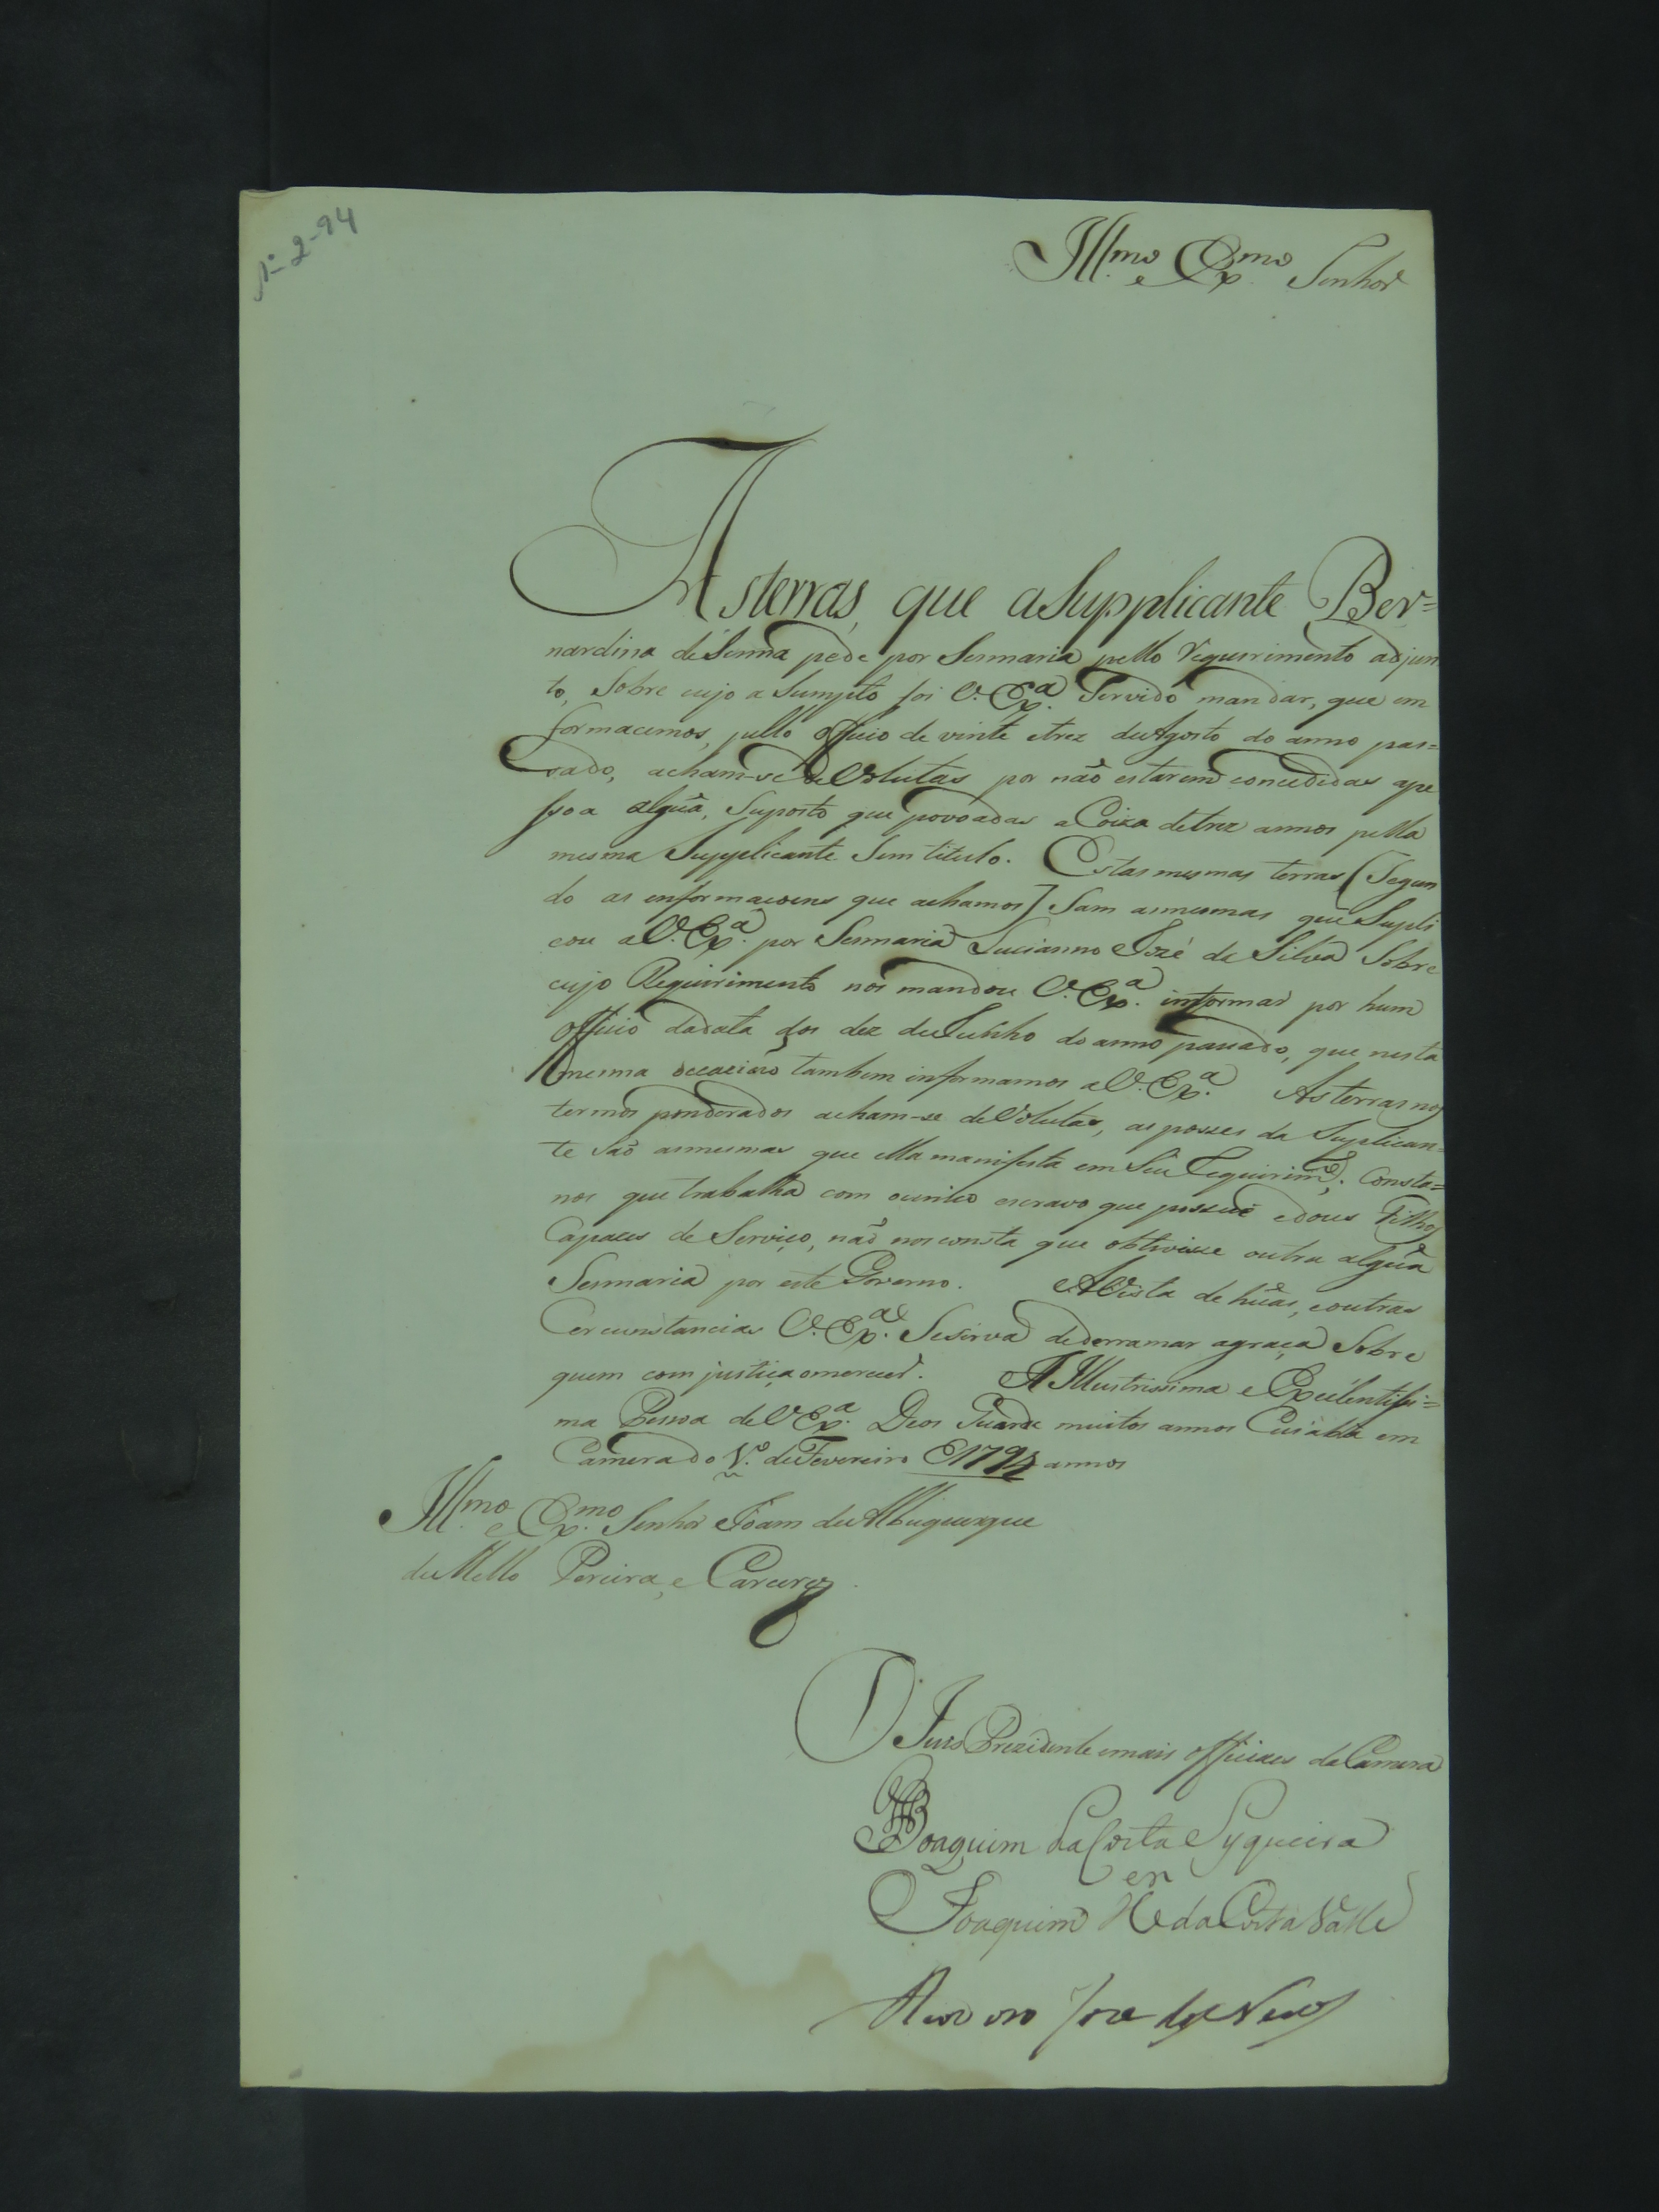 1º-2-94
Illmo. e Exmo. Senhor
As terras, que a Supplicante Ber=
nardina de Senna pede por Sesmaria pello Requirimento adjun
to, Sobre cujo asumpto foi V. Exª. Servido mandar, que em
formacemos, pello officio de vinte etrez de Agosto do anno pas=
sado, acham-se deVolutas por não estarem concedidas ape
ssoa algũa, Suposto que povoadas a Coiza detrez annos pella
mesma Supplicante Sem titulo. Estas mesmas terras [Segun
do as informacoens que achamos] Sam asmesmas que Supli
cou aV. Exª. por Sesmaria Lucianno Jozé da Silva Sobre
cujo Requirimento nos mandou V. Exª. informar por hum
officio dadata dos dez de Junho do anno passado, que nesta
mesma occazião tambem informamos aV. Exª. As terras nos
termos ponderados acham-se deVolutas, as posses da Suplican=
te são asmesmas que ella manifesta em Seu Requirimto; Consta=
nos que trabalha com ounico escravo que possue edous Filhos
Capazes de Serviço, não nosconsta que obtivisse outra algũa
Sesmaria por este Governo. AVista de hũas, eoutras
Cercunstancias V. Exª. Sesirva dederramar agraça Sobre
quem com justiça omerecer. A Illustrissima e Excelentissi=
ma Pessoa deVExª. Deos Guarde muitos annos Cuiabá em
Camera do 1º. de Fevereiro de 1794 annos
Illmo. e Exmo. Senhor Joam de Albuquerque
de Mello Pereira, e Caceres.
O Juis Prezidente emais officiaes da Camara
Joaquim da Costa Syqueira
Joaquim da Costa Valle
Joze